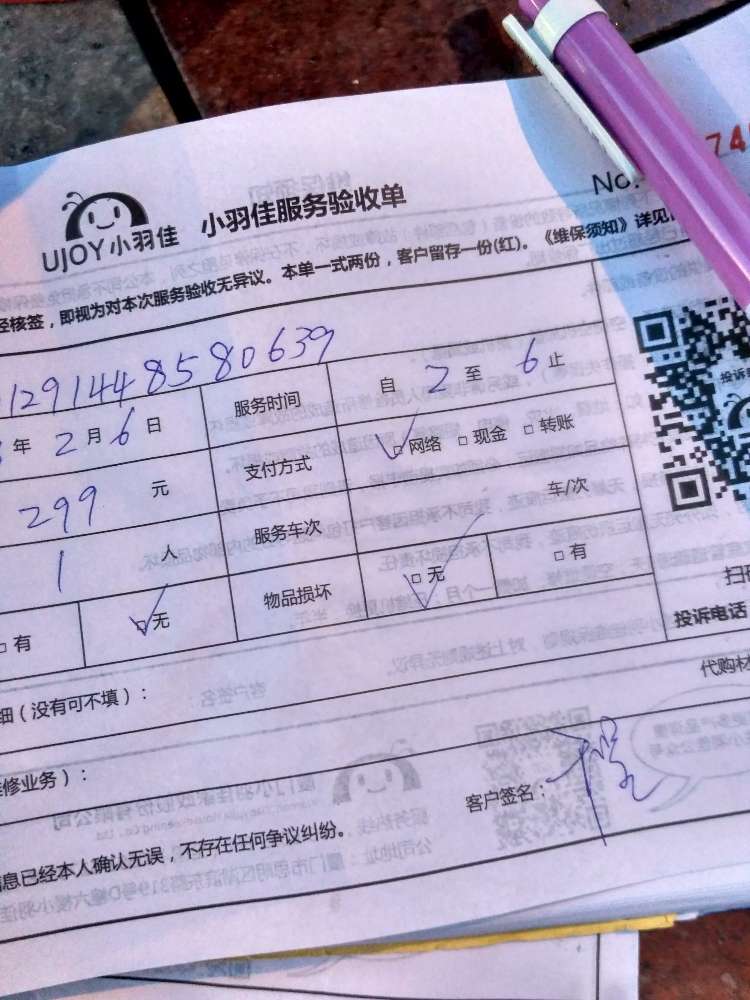 74
No.
UJOY小羽佳 小羽佳服务验收单
经核签，即视为对本次服务验收无异议。本单一式两份，客户留存一份(红)。《维保须知》详见
1291448580639
年 2 月 6 日 服务时间 自 2 至 6 止
299 元 支付方式 ☑网络 □现金 □转账
1 人 服务车次 车/次
□有 ☑无 物品损坏 ☑无 □有
投诉
扫
投诉电话
细（没有可不填）：
代购材
修业务）：
客户签名：
信息已经本人确认无误，不存在任何争议纠纷。